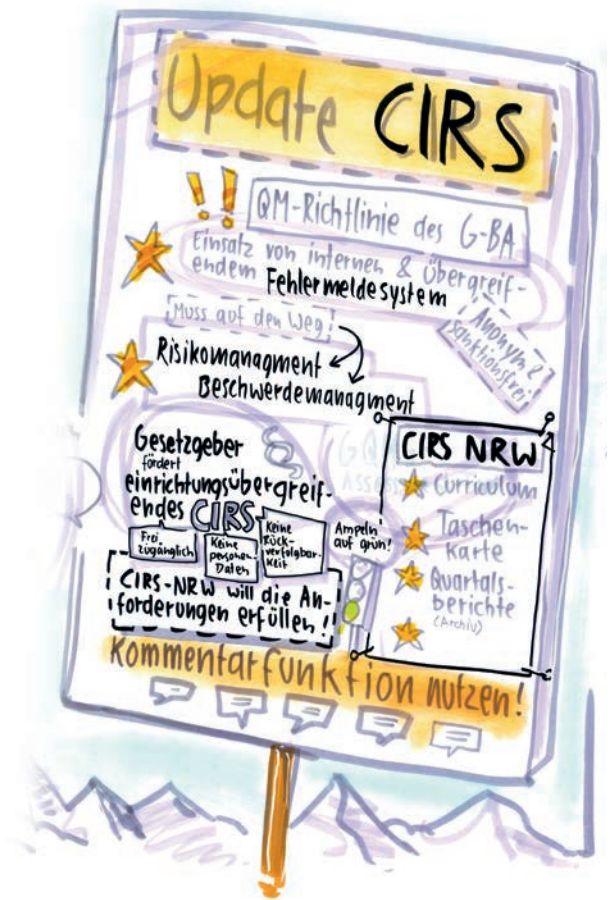 Update CIRS
!! QM-Richtlinie des G-BA
Einsatz von internen & übergreif-
endem Fehlermeldesystem
Muss auf den Weg
Anonym &
sanktionsfrei
Risikomanagment
Beschwerdemanagment
Gesetzgeber
fördert
einrichtungsübergreif-
endes CIRS
Frei
zugänglich
Keine
personen.
Daten
Keine
Rück-
verfolgbar-
keit
Ampeln
auf grün!
CIRS-NRW will die An-
forderungen erfüllen!
CIRS NRW
Curriculum
Taschen-
karte
Quartals-
berichte
(Archiv)
Kommentarfunktion nutzen!